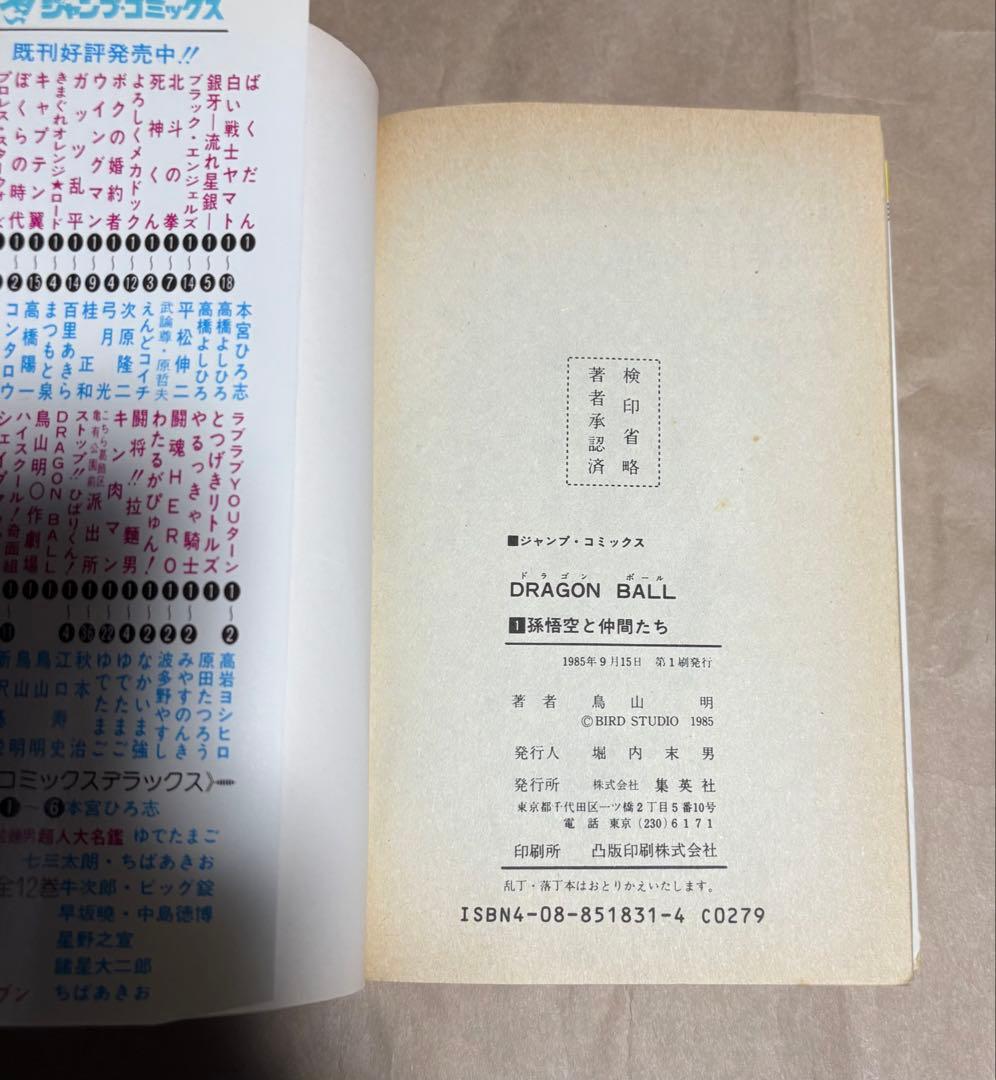 ジャンプ・コミックス
既刊好評発売中!!
ばくだん ❶ 本宮ひろ志
白い戦士ヤマト ❶〜⓲ 高橋よしひろ
銀牙―流れ星銀― ❶〜❺ 高橋よしひろ
ブラック・エンジェルズ ❶〜⓮ 平松伸二
北斗の拳 ❶〜❼ 武論尊・原哲夫
死神くん ❶〜❸ えんどコイチ
よろしくメカドック ❶〜⓬ 次原隆二
ボクの婚約者 ❶〜❹ 弓月光
ウイングマン ❶〜❾ 桂正和
ガッツ乱平 ❶〜⓮ 百里あきら
きまぐれオレンジ★ロード ❶〜❹ まつもと泉
キャプテン翼 ❶〜⓯ 高橋陽一
ぼくらの時代 ❶〜❷ コンタロウ
ラブラブYOUターン ❶〜❷ 高岩ヨシヒロ
とつげきリトルズ ❶ 原田たつろう
やるっきゃ騎士 ❶〜❷ みやすのんき
闘魂HERO ❶〜❷ 波多野やすし
わたるがぴゅん! ❶〜❷ なかいま強
闘将!!拉麵男 ❶〜❹ ゆでたまご
キン肉マン ❶〜㉒ ゆでたまご
こちら葛飾区亀有公園前派出所 ❶〜㊱ 秋本治
ストップ!!ひばりくん! ❶〜❹ 江口寿史
DRAGON BALL ❶ 鳥山明
鳥山明○作劇場 ❶ 鳥山明
ハイスクール!奇面組 ❶〜⓫
コミックスデラックス》
❶〜❻本宮ひろ志
超人大名鑑 ゆでたまご
七三太朗・ちばあきお
全12巻 牛次郎・ビッグ錠
早坂暁・中島徳博
星野之宣
諸星大二郎
ブン ちばあきお
検印省略
著者承認済
■ジャンプ・コミックス
ドラゴン ボール
DRAGON BALL
1孫悟空と仲間たち
1985年9月15日 第1刷発行
著者 鳥山明
©BIRD STUDIO 1985
発行人 堀内末男
発行所 株式会社 集英社
東京都千代田区一ツ橋2丁目5番10号
電話 東京(230)6171
印刷所 凸版印刷株式会社
乱丁・落丁本はおとりかえいたします。
ISBN4-08-851831-4 C0279